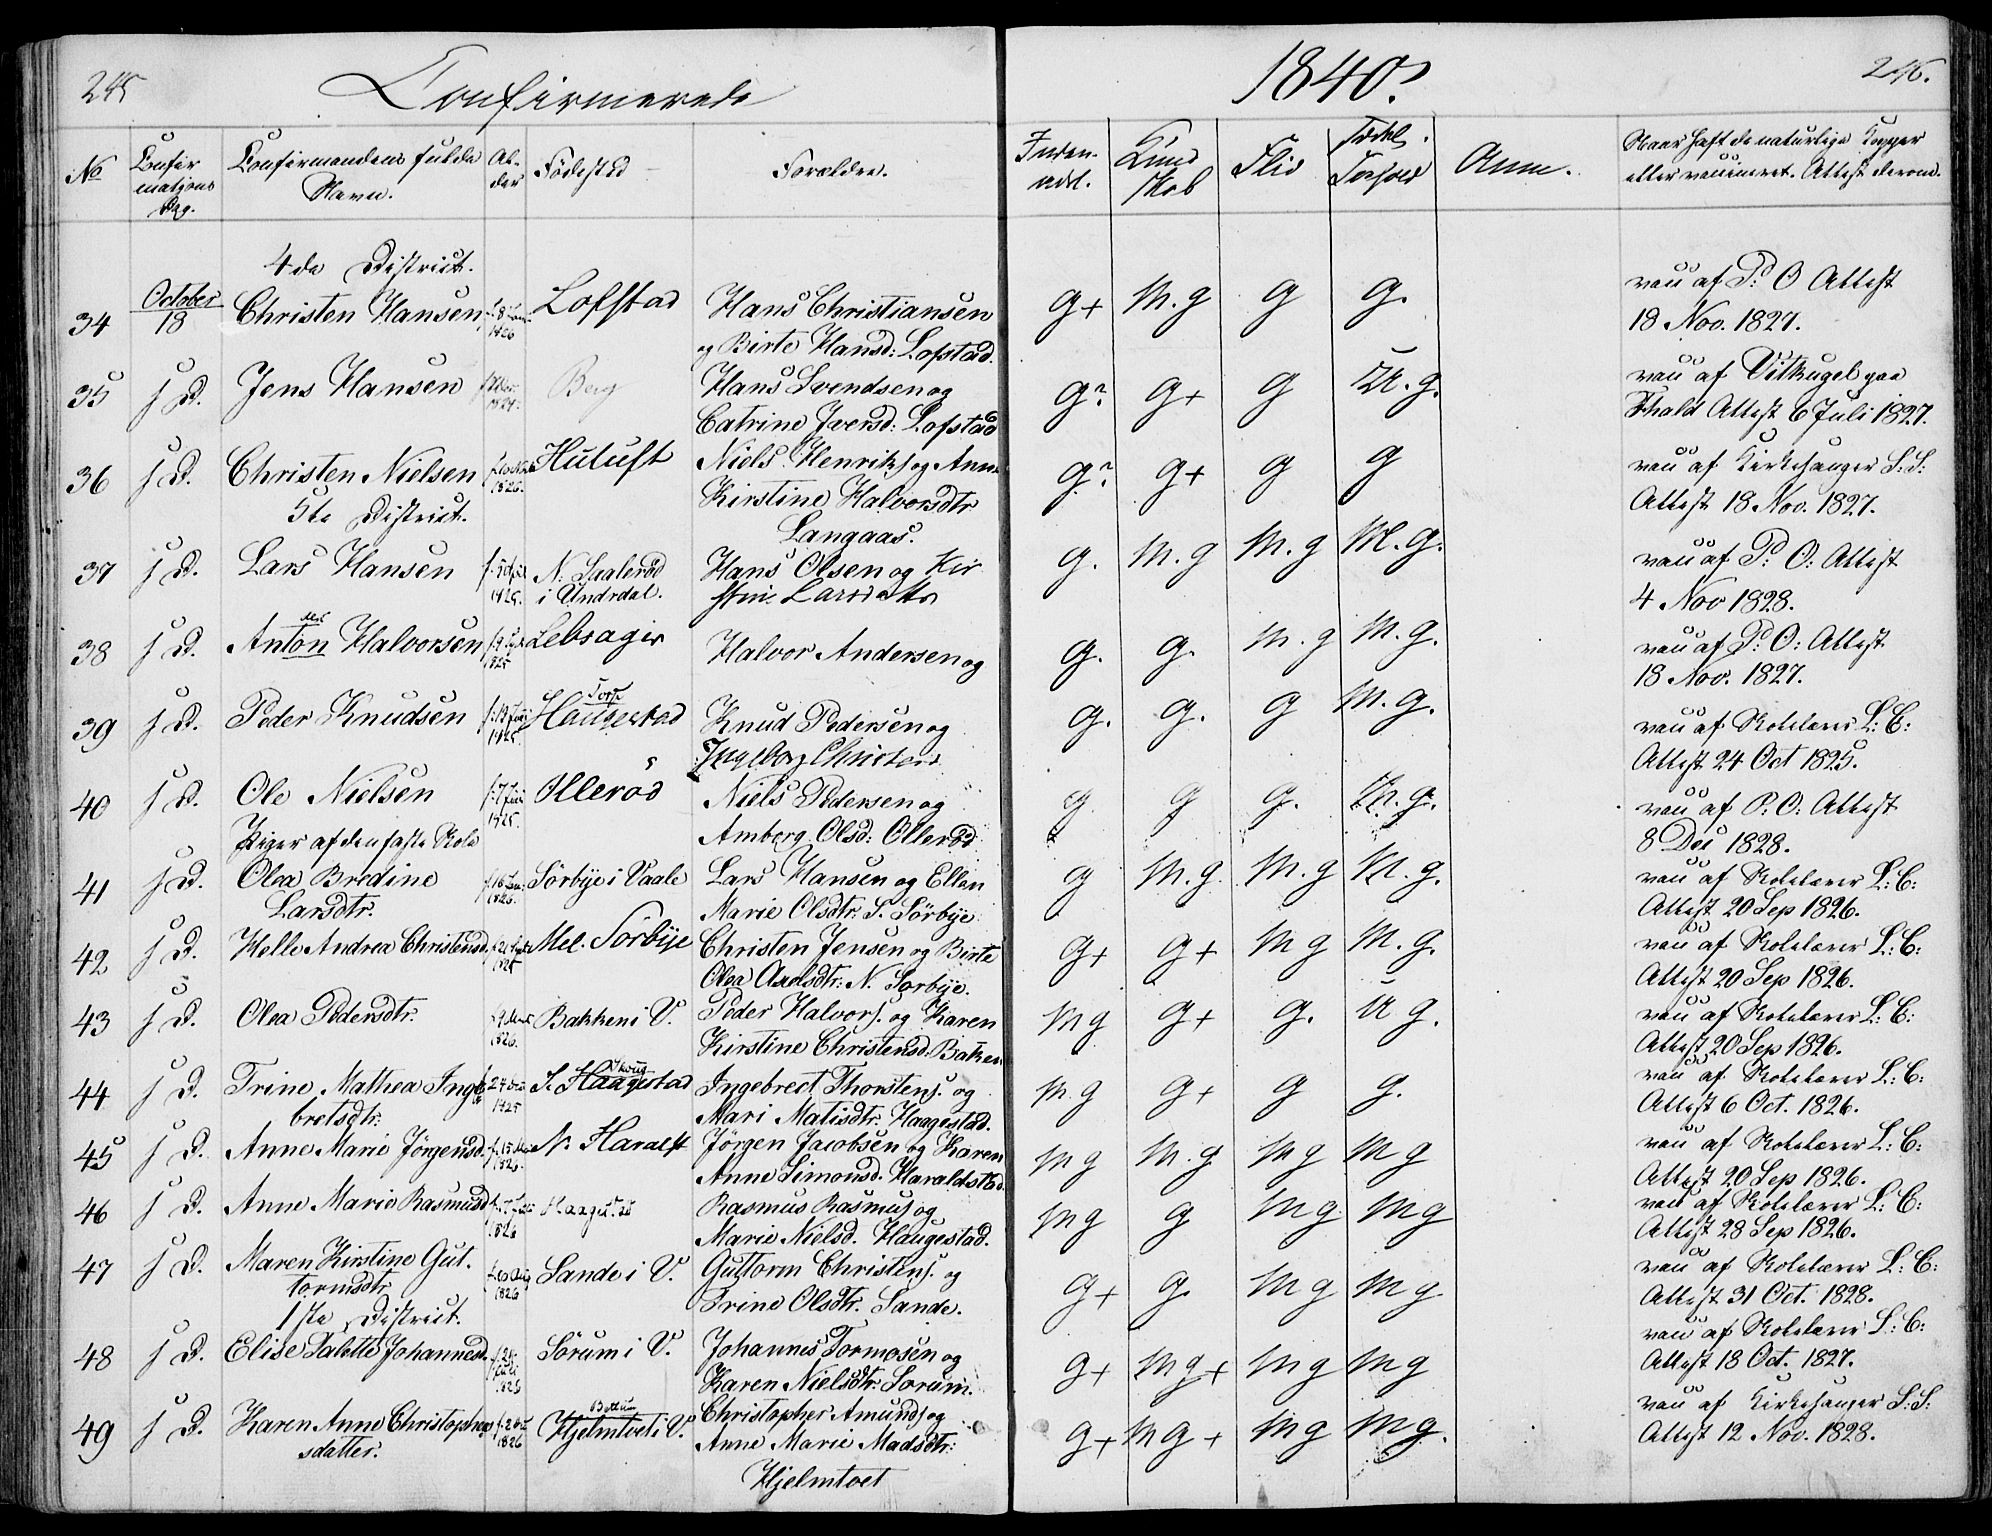 245 Confirmerede 1840. 246.
No Confirmations Dag. Confirmandens fulde Navn. Alder Fødested Forældre. Inden-adl. Kundskab Flid Forhold Anm. Naar haft de naturlige Kopper eller vaccineret. Attest derom.
4de District.
34 October 18 Christen Hansen 1826 Lofstad Hans Christiansen g+ M.g g g. vacc af P: O Attest
og Birte Hansd: Lofstad. 18 Nov. 1827.
35 s D. Jens Hansen Berg Hans Svendsen og g? g+ g M.g. vacc af Vitkugel paa
Catrine Iversd: Lofstad Fhald Attest 6 Juli 1827.
36 s D. Christen Nielsen Huluft Niels Henriks og Anne g? g+ g g vacc af Kirkesanger S.S:
Kirstine Halvorsdtr Attest 18 Nov. 1827.
5te District. Langaas.
37 s D. Lars Hansen 1825. N. Saalerød Hans Olsen og Kir g. M.g M.g M.g. vacc af P: O: Attest
i Undrdal. stine Larsdatter 4 Nov 1828.
38 s D. Anton Halvorsen 1825 Lebsager Halvor Andersen og g. g. M.g M.g. vacc af P: O: Attest
18 Nov. 1827.
Torp
39 s D. Peder Knudsen 1825. Haugestad Knud Pedersen og g. g. g M.g. vacc af Skolelærer L: C:
Ingeborg Christens Attest 24 Oct 1825.
40 s D. Ole Nielsen 1825. Ollerød Niels Pedersen og g g g. M.g. vacc af P. O: Attest
Piger af den faste Skole Amberg Olsd: Ollerød 8 Dec 1828.
41 s D. Olea Bredine 1826. Sørbye i Vaale Lars Hansen og Ellen g M.g. M.g M.g. vacc af Skolelærer L: C:
Larsdtr. Marie Olsdtr. S. Sörbye Attest 20 Sep 1826.
42 s D. Helle Andrea Christensd. 1825 Mel. Sørbye Christen Jensen og Birte g+ g+ M g M.g. vacc af Skolelærer L: C:
Olea Axelsdtr: N. Sørbye. Attest 20 Sep 1826.
43 s D. Olea Pedersdtr. 1826. Bakken i V. Peder Halvors. og Karen M g g+ g. U g. vacc af Skolelærer L: C:
Kirstine Christensd: Bakken Attest 20 Sep 1826.
44 s D. Trine Mathea Inge 1825 S. Haagestad Ingebrect Thorstens. og M.g g+ g g. vacc af Skolelærer L: C:
bretsdtr: Mari Matisdtr. Haagestad. Attest 6 Oct. 1826.
45 s D. Anne Marie Jørgensd. 1826. N. Haralst Jørgen Jacobsen og Karen M g M.g M g M g vacc af Skolelærer L: C:
Anne Simonsd. Haraldstad. Attest 20 Sep 1826.
46 s D. Anne Marie Rasmusd 1826 Haagestad Rasmus Rasmus og M g g M g M g vacc af Skolelærer L: C:
Marie Nielsd. Haugestad. Attest 28 Sep 1826.
47 s D. Maren Kirstine Gut. 1826 Sande i V. Guttorm Christens. og g+ g. M g M g vacc af Skolelærer L: C:
tormsdtr Trine Olsdtr. Sande. Attest 31 Oct. 1828.
1ste District.
48 s D. Elise Talette Johannesd. 1826 Sørum i V. Johannes Tormosen og g+ M g+ M g M g vacc af Skolelærer L: C:
Karen Nielsdtr: Sorum. Attest 18 Oct. 1827.
49 s D. Karen Anne Christophers 1826 Hjelmtvet i V. Christopher Amunds og g+ M g+ M g M g. vacc af Kirkesanger S.S:
sdatter. Anne Marie Madsdtr: Attest 12 Nov. 1828.
Hjelmtvet